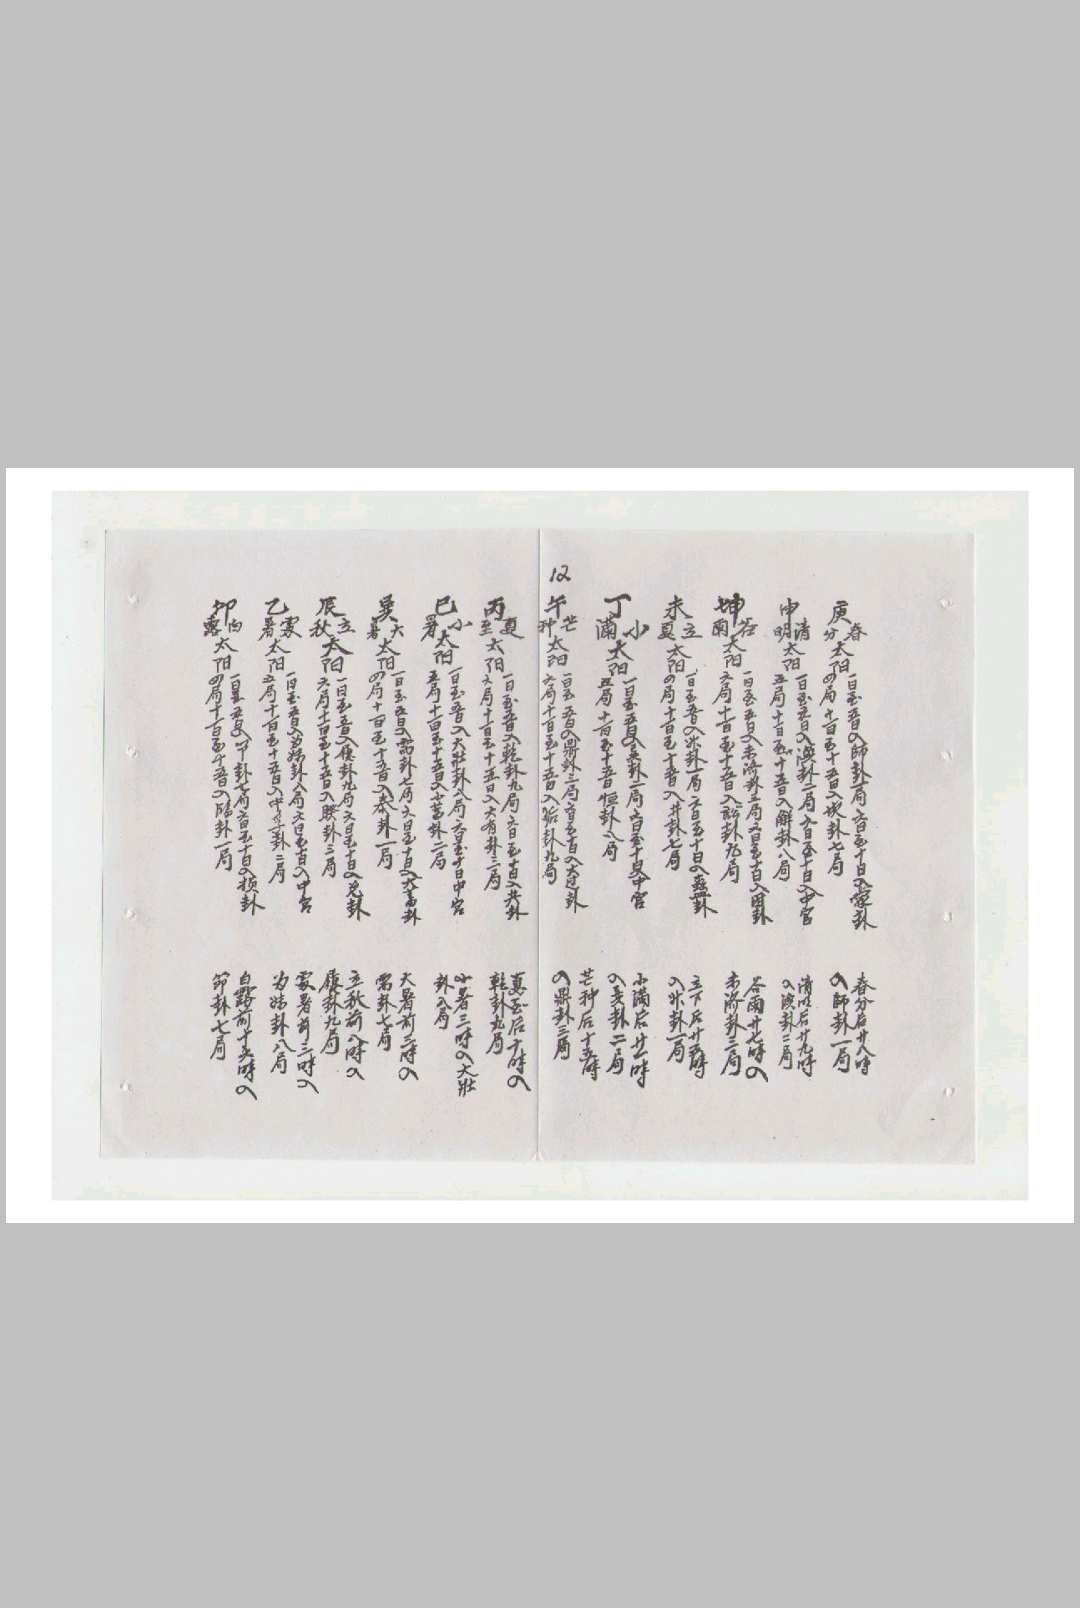 12
庚 春分 太阳 一日至五日入師卦一局六日至十日入蒙卦
四局十一日至十五日入坎卦七局
申 清明 太阳 一日至五日入渙卦二局六日至十日入中宮
五局十一日至十五日入解卦八局
坤 谷雨 太阳 一日至五日入未济卦三局六日至十日入困卦
六局十一日至十五日入訟卦九局
未 立夏 太阳 一日至五日入升卦一局六日至十日入蠱卦
四局十一日至十五日入井卦七局
丁 小滿 太阳 一日至五日入巽卦二局六日至十日入中宮
五局十一日至十五日恒卦八局
午 芒种 太阳 一日至五日入鼎卦三局六日至十日入大过卦
六局十一日至十五日入姤卦九局
丙 夏至 太阳 一日至五日入乾卦九局六日至十日入夬卦
六局十一日至十五日入大有卦三局
巳 小暑 太阳 一日至五日入大壯卦八局六日至十日中宮
五局十一日至十五日入小畜卦二局
巽 大暑 太阳 一日至五日入需卦七局六日至十日入大畜卦
四局十一日至十五日入泰卦一局
辰 立秋 太阳 一日至五日入履卦九局六日至十日入兌卦
六局十一日至十五日入睽卦三局
乙 處暑 太阳 一日至五日入归妹卦八局六日至十日入中宮
五局十一日至十五日入中孚卦二局
卯 白露 太阳 一日至五日入节卦七局六日至十日入损卦
四局十一日至十五日入临卦一局
春分后廿八時
入師卦一局
清明后廿九時
入渙卦二局
谷雨廿七時入
未济卦三局
立下后廿五時
入升卦一局
小滿后廿一時
入巽卦二局
芒种后十五時
入鼎卦三局
夏至后十時入
乾卦九局
小暑三時入大壯
卦八局
大暑前三時入
需卦七局
立秋前八時入
履卦九局
處暑前三時入
归妹卦八局
白露前十五時入
节卦七局